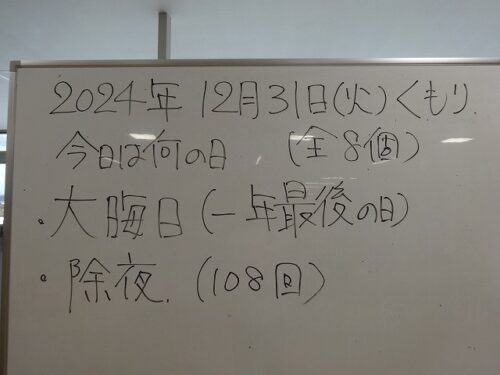 2024年 12月31日(火)くもり.
今日は何の日 (全8個)
・大晦日(一年最後の日)
・除夜.(108回)